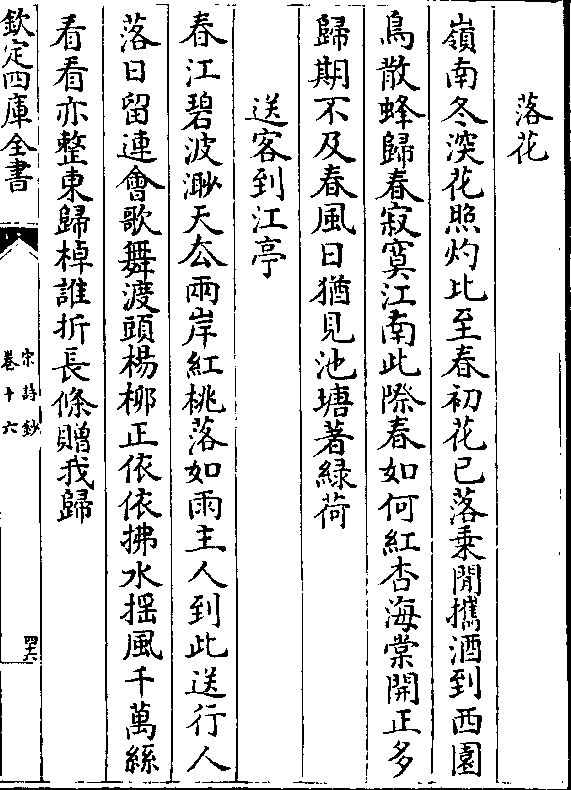 落花
嶺南冬深花照灼比至春初花已落乗閒攜酒到西園
鳥散蜂歸春寂寞江南此際春如何紅杏海棠開正多
歸期不及春風日猶見池塘著緑荷
送客到江亭
春江碧波渺天厺兩岸紅桃落如雨主人到此送行人
落日留連㑹歌舞渡頭楊栁正依依拂水揺風千萬絲
看看亦整東歸棹誰折長條贈我歸
欽定四庫全書
宋詩鈔
卷十六
四六